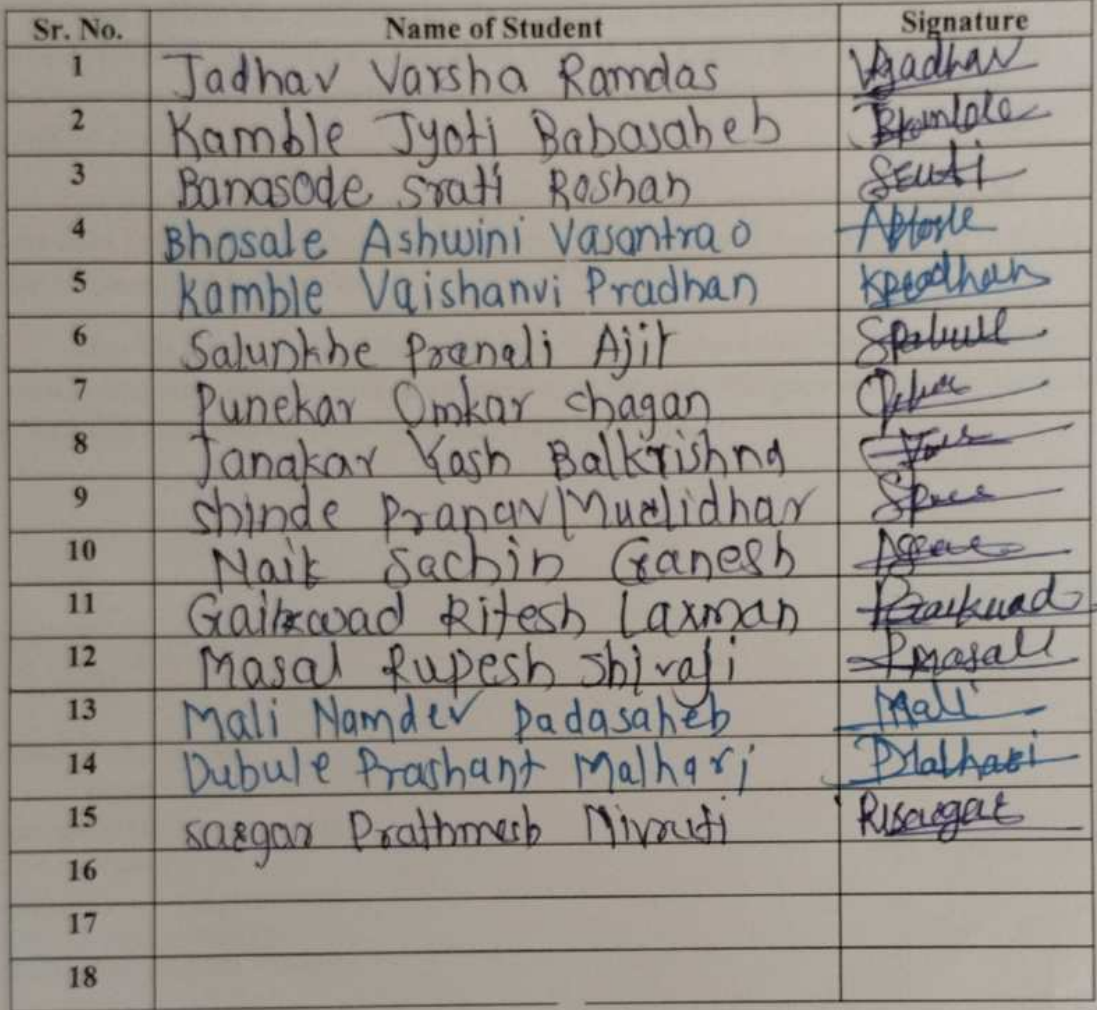 Sr. No. Name of Student Signature
1 Jadhav Varsha Ramdas Vjadhav
2 Kamble Jyoti Babasaheb
3 Banasode srati Roshan
4 Bhosale Ashwini Vasantrao
5 Kamble Vaishanvi Pradhan Kpradhan
6 Salunkhe Pranali Ajit
7 Punekar Omkar Chagan
8 Janakar Yash Balkrishna
9 Shinde Pranav Murlidhar
10 Naik Sachin Ganesh
11 Gaikwad Ritesh Laxman
12 Masal Rupesh Shivaji
13 Mali Namdev Dadasaheb Mali
14 Dubule Prashant Malhari
15 sargar Prathmesh Nivruti
16
17
18